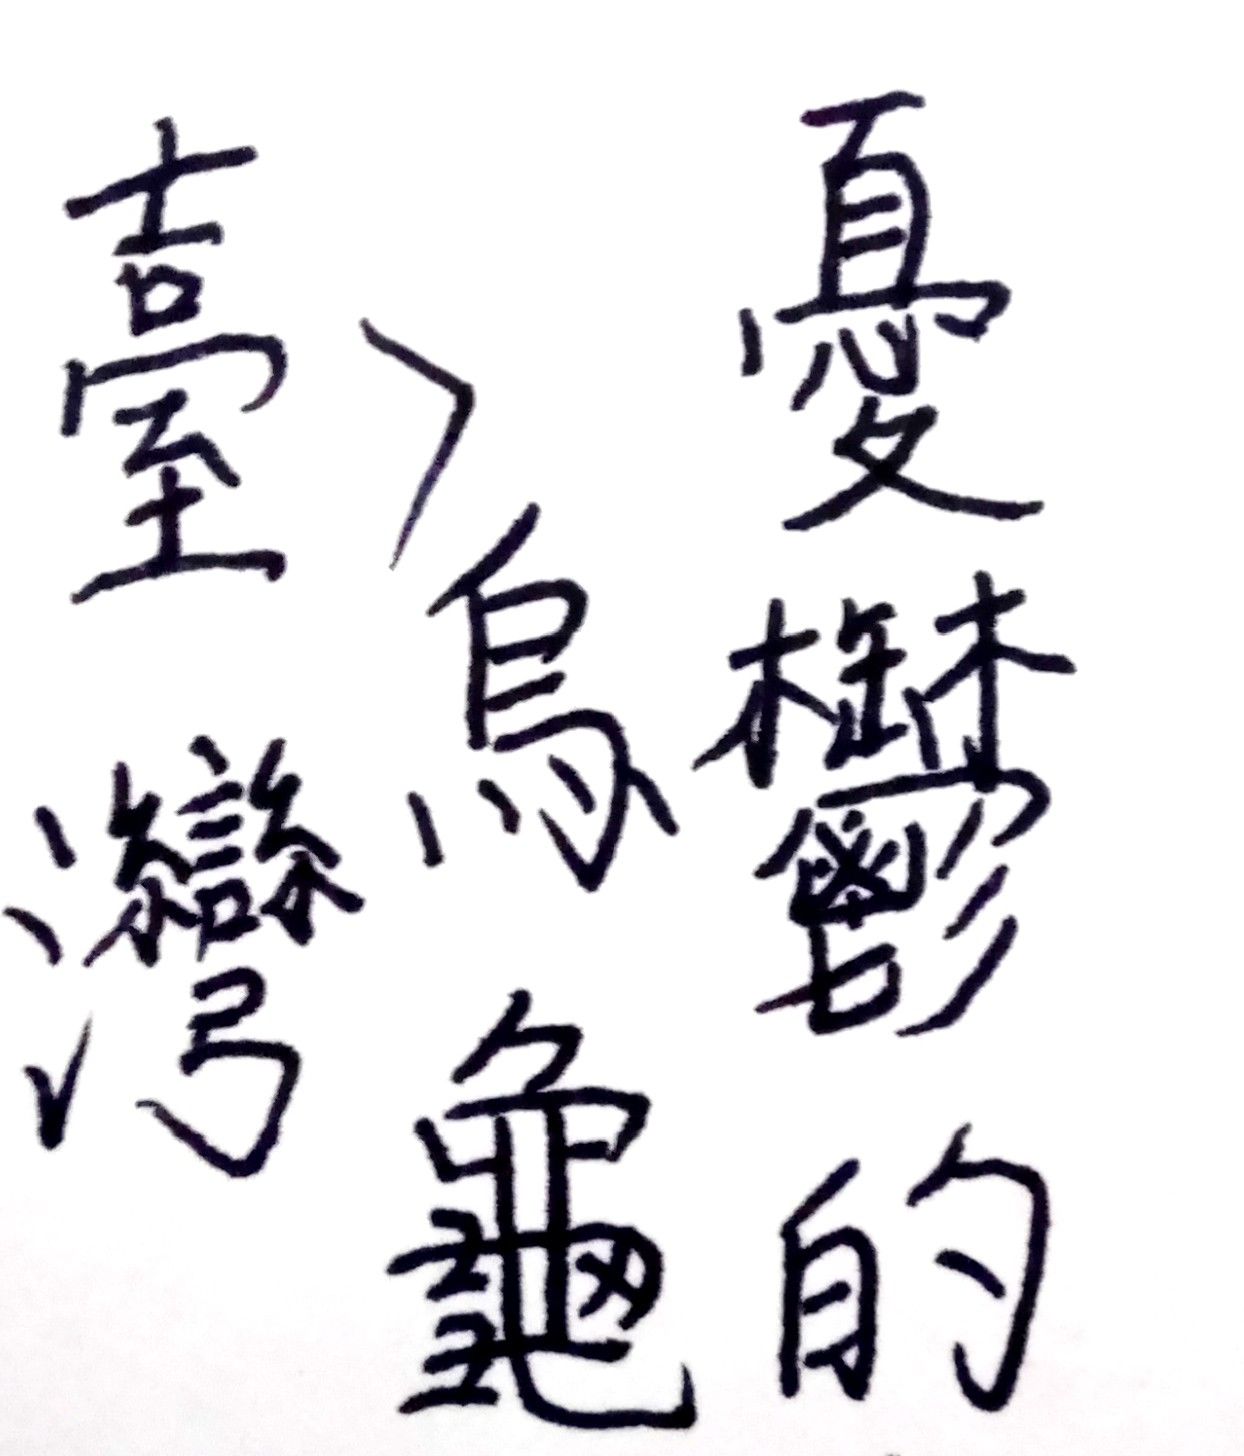 憂鬱的
臺灣
烏龜